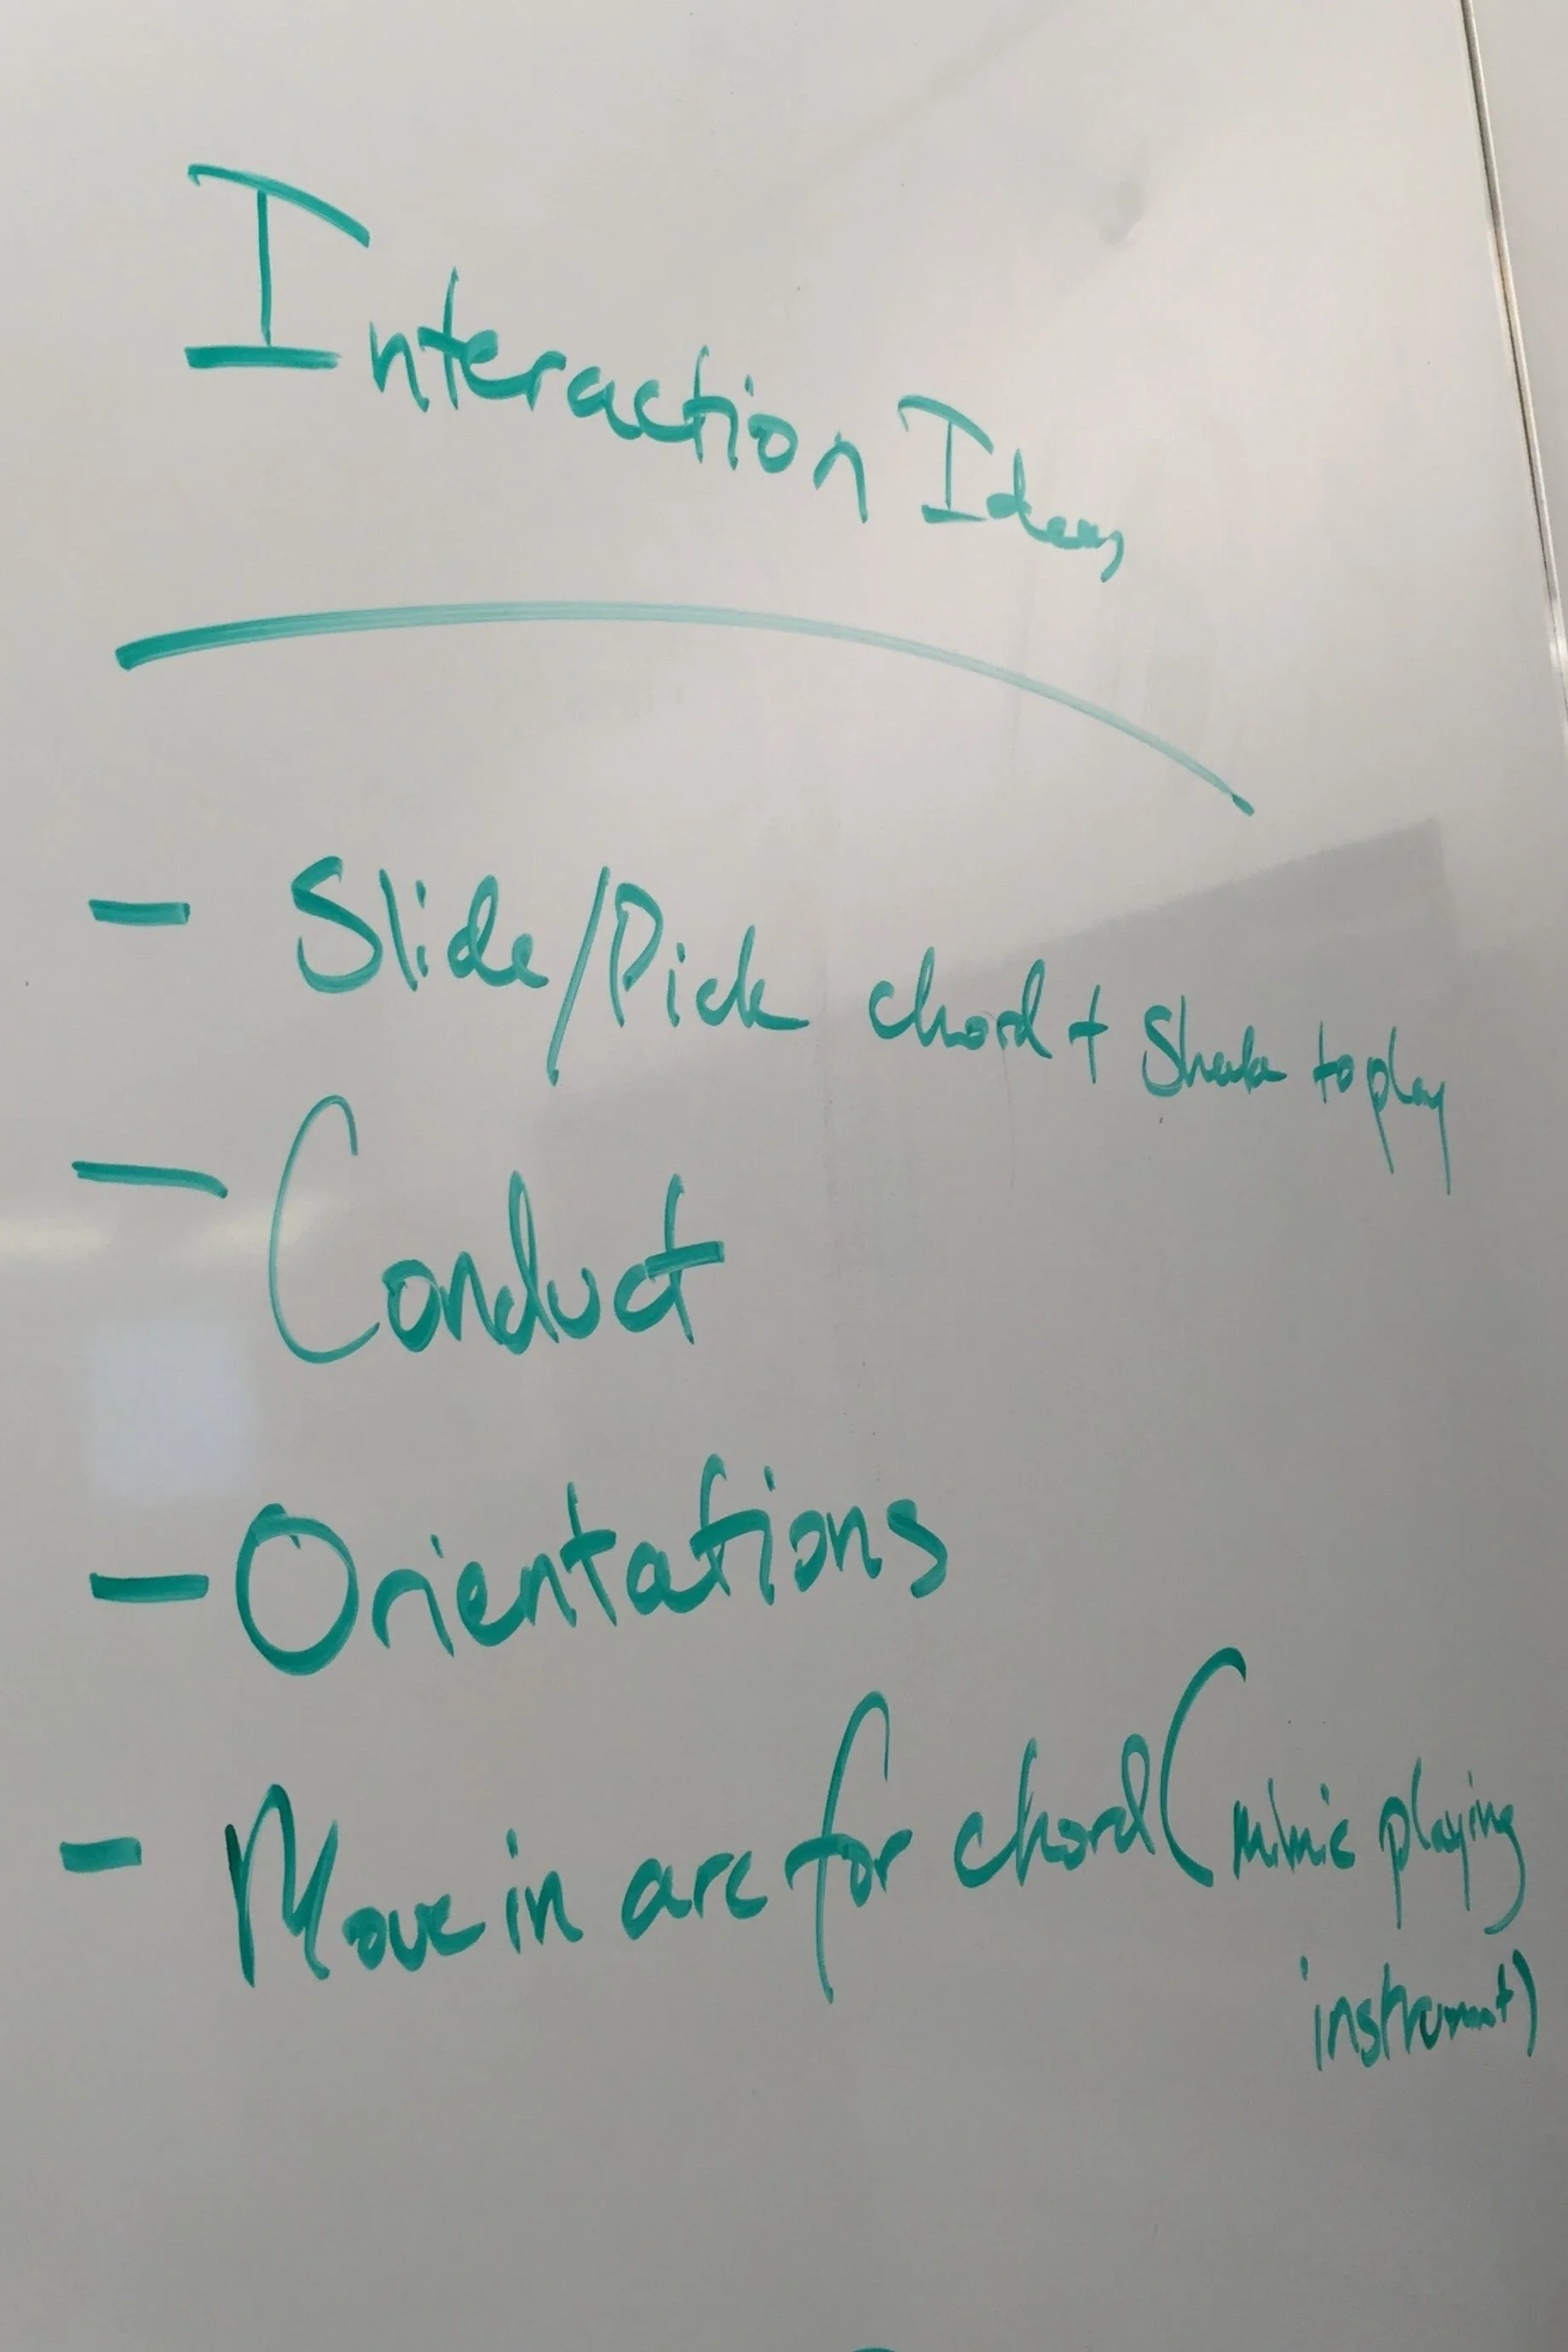 Interaction Ideas
- Slide/Pick chord + Shake to play
- Conduct
- Orientations
- Move in arc for chord (mimic playing
instrument)